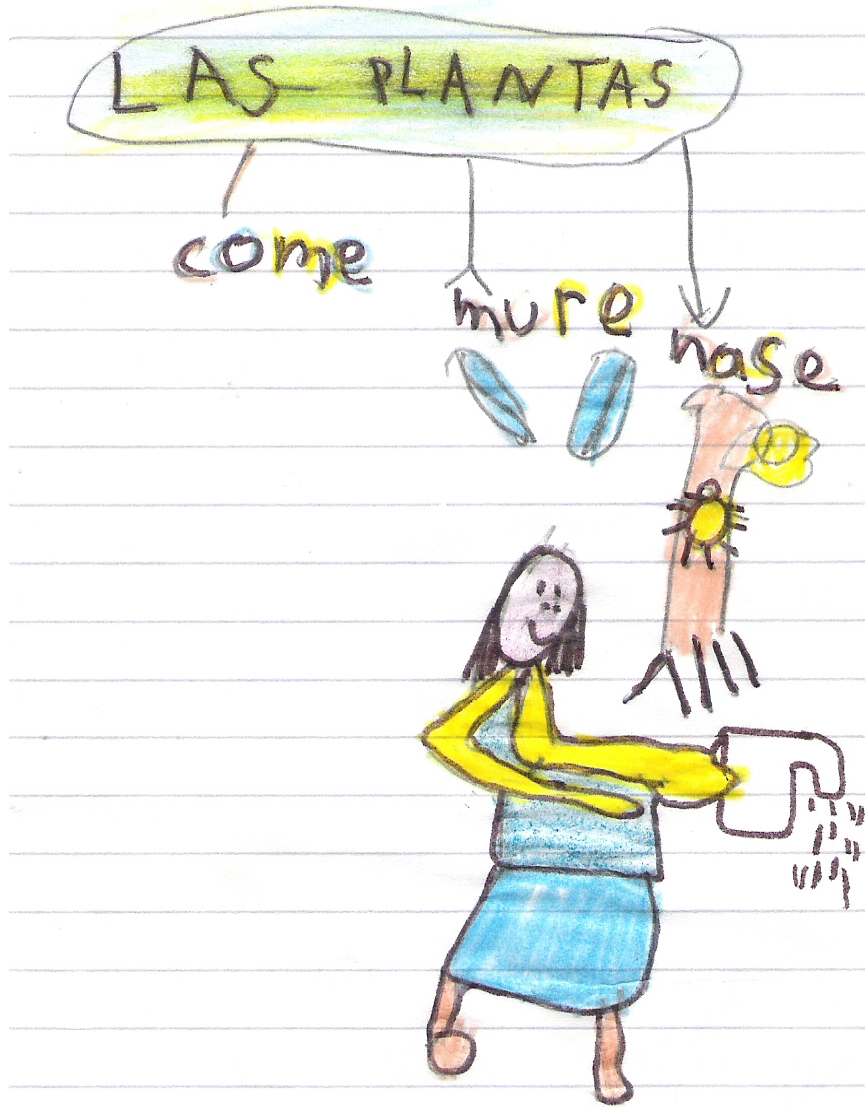 LAS PLANTAS
come
mure
nase